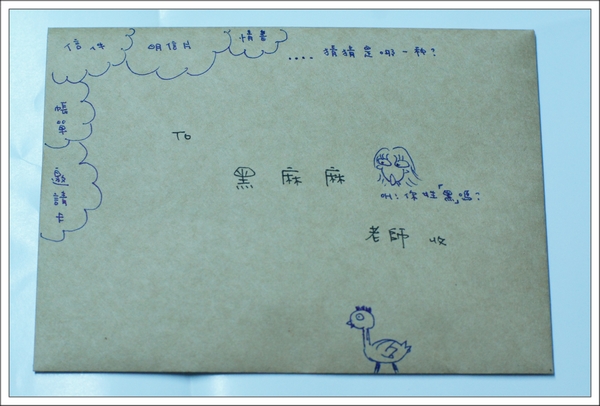 信件
明信片
情書
....猜猜是哪一種?
帳單
邀請卡
To
黑麻麻
吔:你姓「黑」嗎?
老師 收